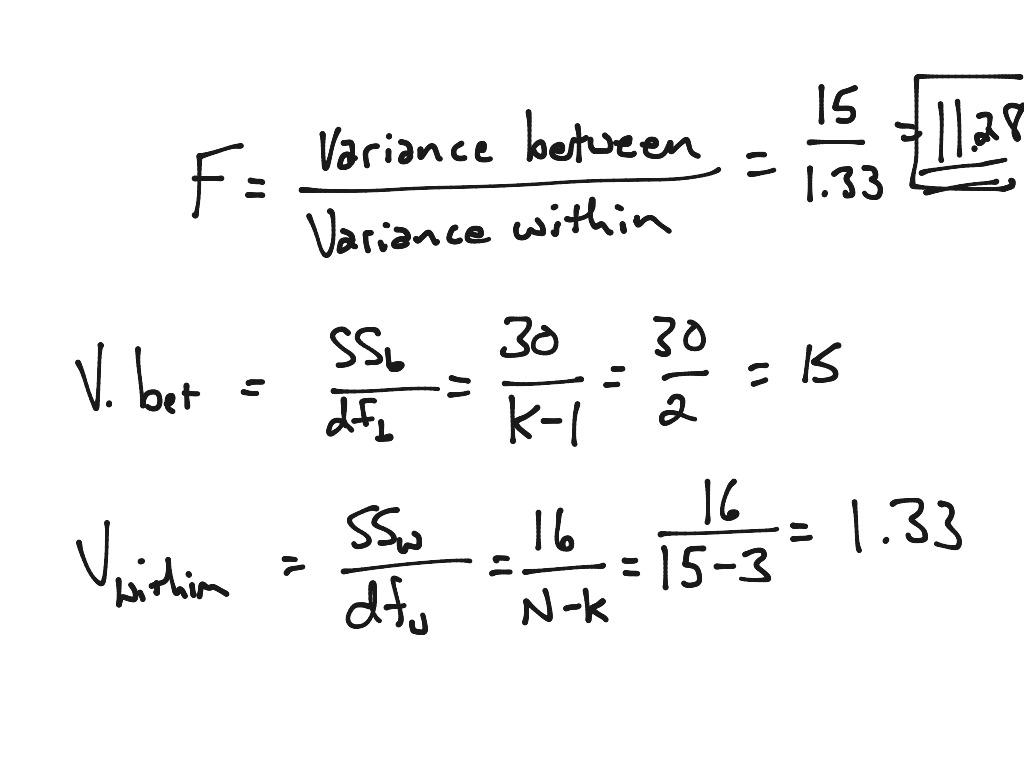 F = Variance between / Variance within = 15 / 1.33 = 11.28
V. bet = SSb / dfb = 30 / K-1 = 30 / 2 = 15
Vwithin = SSw / dfw = 16 / N-K = 16 / 15-3 = 1.33